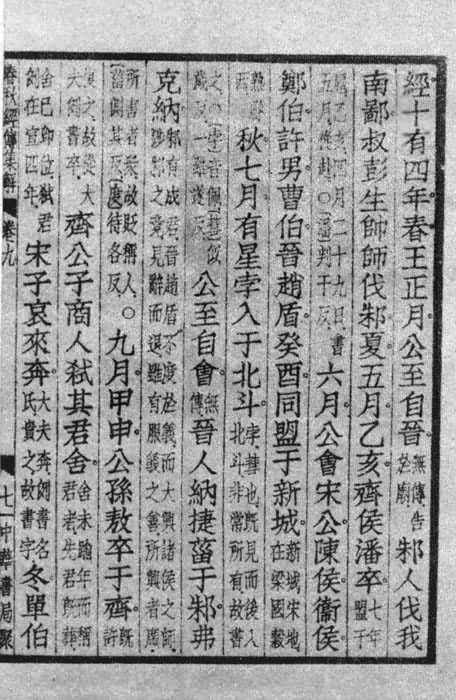 經十有四年春王正月公至自晉無傳告於廟邾人伐我
南鄙叔彭生帥師伐邾夏五月乙亥齊侯潘卒七年盟于
扈乙亥四月二十九日書五月從赴○潘判干反六月公會宋公陳侯衞侯
鄭伯許男曹伯晉趙盾癸酉同盟于新城新城宋地在梁國穀
熟縣西秋七月有星孛入于北斗孛彗也既見而後入北斗非常所有故書
之○孛音佩彗似歲反一雖遂反公至自會無傳晉人納捷菑于邾弗
克納邾有成君晉趙盾不度於義而大興諸侯之師涉邾之竟見辭而退雖有服義之善所興者廣
所害者衆故貶稱人○菑側其反度待各反九月甲申公孫敖卒于齊既許
復之故從大夫例書卒齊公子商人弒其君舍舍未踰年而稱君者先君既葬
舍已即位弒君例在宣四年宋子哀來奔大夫奔例書名氏貴之故書字冬單伯
春秋經傳集解 卷九 七一中華書局聚